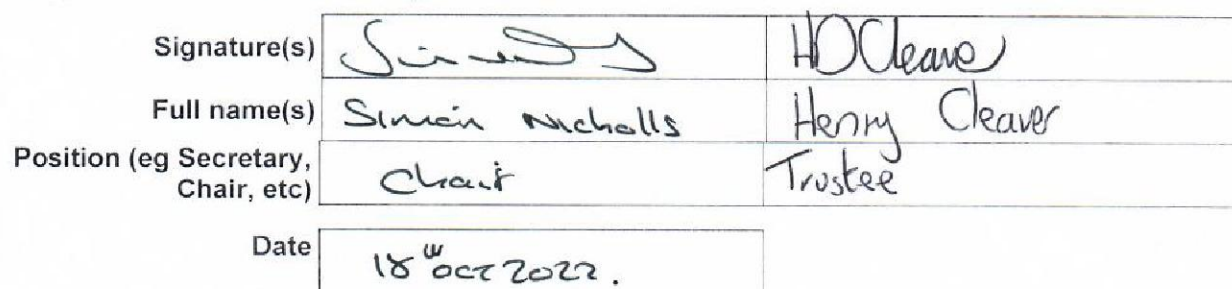 Signature(s) HDCleaver
Full name(s) Simon Nicholls Henry Cleaver
Position (eg Secretary, Chair Trustee
Chair, etc)
Date 18th OCT 2022.